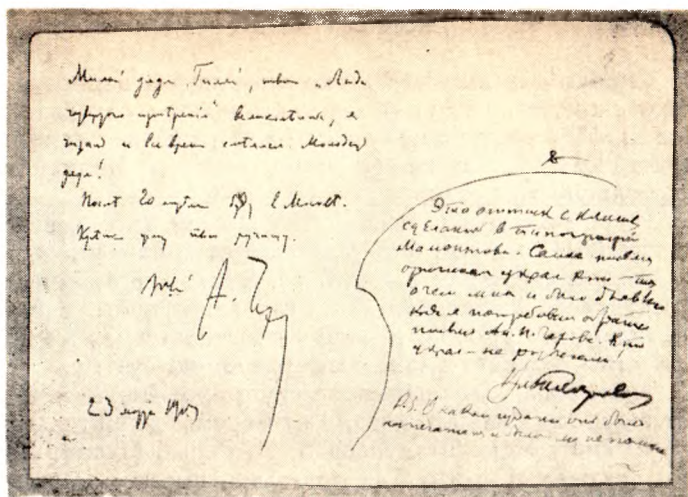 Милый дядя Гиляй, твои „Люди
четвертого измерения" великолепны, я
читал и все время смеялся. Молодец
дядя!
После 20 апреля буду в Москве.
Крепко жму твою ручищу.
А. Чехов
23 марта 1903
Это оттиск с клише
сделанный в типографии
Мамонтова. Само письмо
оригинал украл кто-то
о чем мне и было
когда я потребовал обратно
письмо Ан. П. Чехова. Кто
украл – не разыскали!
Гиляровский
P.S. В каком издании оно было
напечатано и было ли не помню